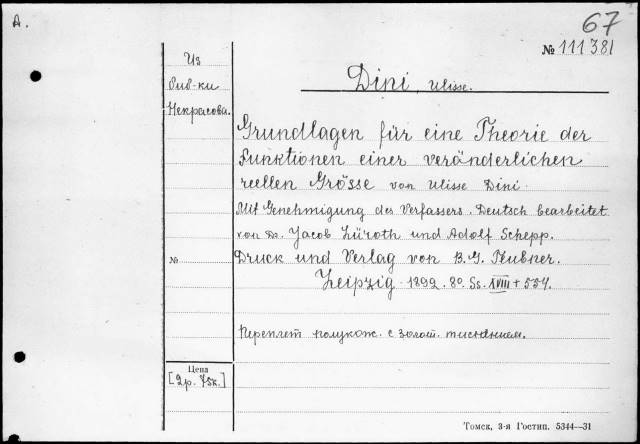 А.
67
№ 111381
Из
биб-ки
Некрасова.
Dini, Ulisse.
Grundlagen für eine Theorie der
Funktionen einer veränderlichen
reellen Grösse von Ulisse Dini.
Mit Genehmigung des Verfassers. Deutsch bearbeitet
von Dr. Jacob Lüroth und Adolf Schepp.
№
Druck und Verlag von B. G. Teubner.
Leipzig. 1892. 8o. Ss. XVIII + 554.
Переплет полукож. с золот. тиснением.
Цена
[2р. 75к.]
Томск, 3-я Гостип. 5344—31